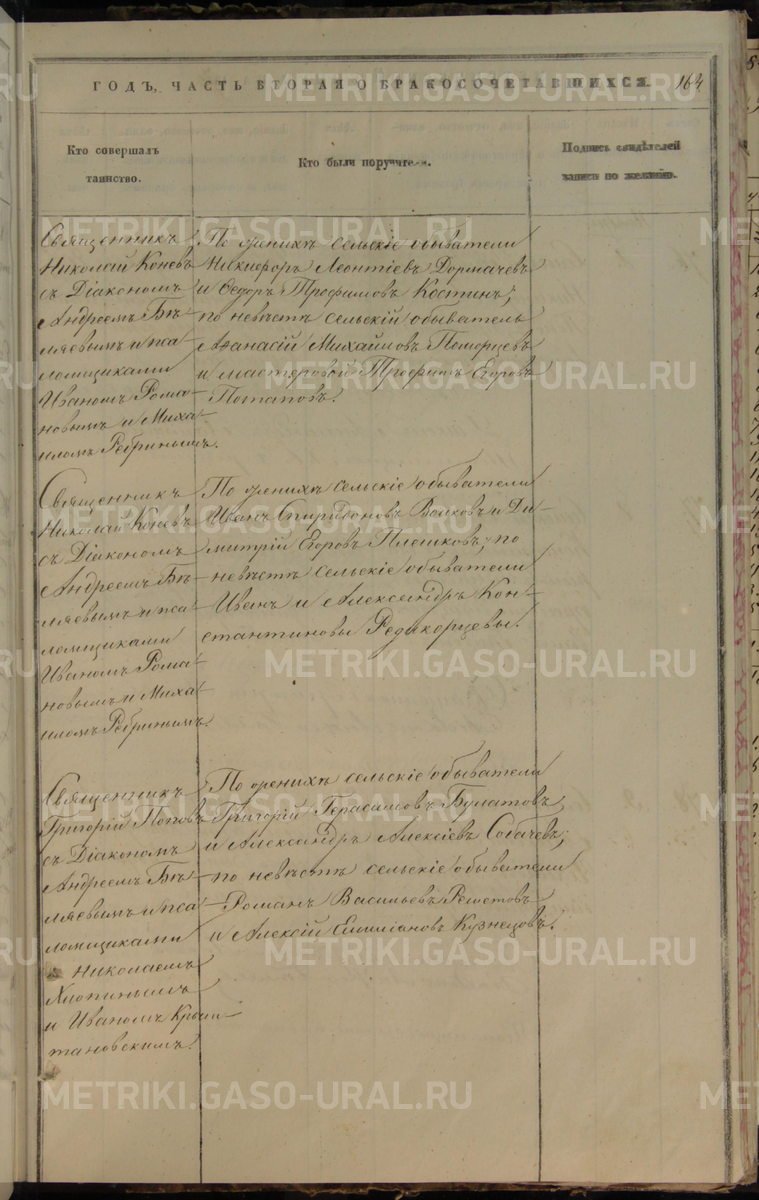 ГОДЪ, ЧАСТЬ ВТОРАЯ О БРАКОСОЧЕТАВШИХСЯ. 164
Кто совершалъ
таинство.
Кто были поручители.
Подпись свидѣтелей
записи по желанію.
Священникъ
Николай Коневъ
съ Діакономъ
Андреемъ Бѣ-
ляевымъ и пса-
ломщиками
Иваномъ Рома-
новымъ и Миха-
иломъ Ребринымъ.
По женихѣ сельскіе обыватели
Никифоръ Леонтіевъ Дормачевъ
и Ѳедоръ Трофимовъ Костинъ;
по невѣстѣ сельскій обыватель
Аѳанасій Михайловъ Поморцевъ
и мастеровой Трофимъ Егоровъ
Потаповъ.
Священникъ
Николай Коневъ
съ Діакономъ
Андреемъ Бѣ-
ляевымъ и пса-
ломщиками
Иваномъ Рома-
новымъ и Миха-
иломъ Ребринымъ.
По женихѣ сельскіе обыватели
Иванъ Спиридоновъ Волковъ и Ди-
митрій Егоровъ Плешковъ; по
невѣстѣ сельскіе обыватели
Иванъ и Александръ Кон-
стантиновы Редикорцевы.
Священникъ
Григорій Поповъ
съ Діакономъ
Андреемъ Бѣ-
ляевымъ и пса-
ломщиками
Николаемъ
Хлопинымъ
и Иваномъ
тановскимъ.
По женихѣ сельскіе обыватели
Григорій Герасимовъ Булатовъ
и Александръ Алексіевъ Собачевъ;
по невѣстѣ сельскіе обыватели
Романъ Васильевъ Решетовъ
и Алексій Емиліановъ Кузнецовъ.
METRIKI.GASO-URAL.RU